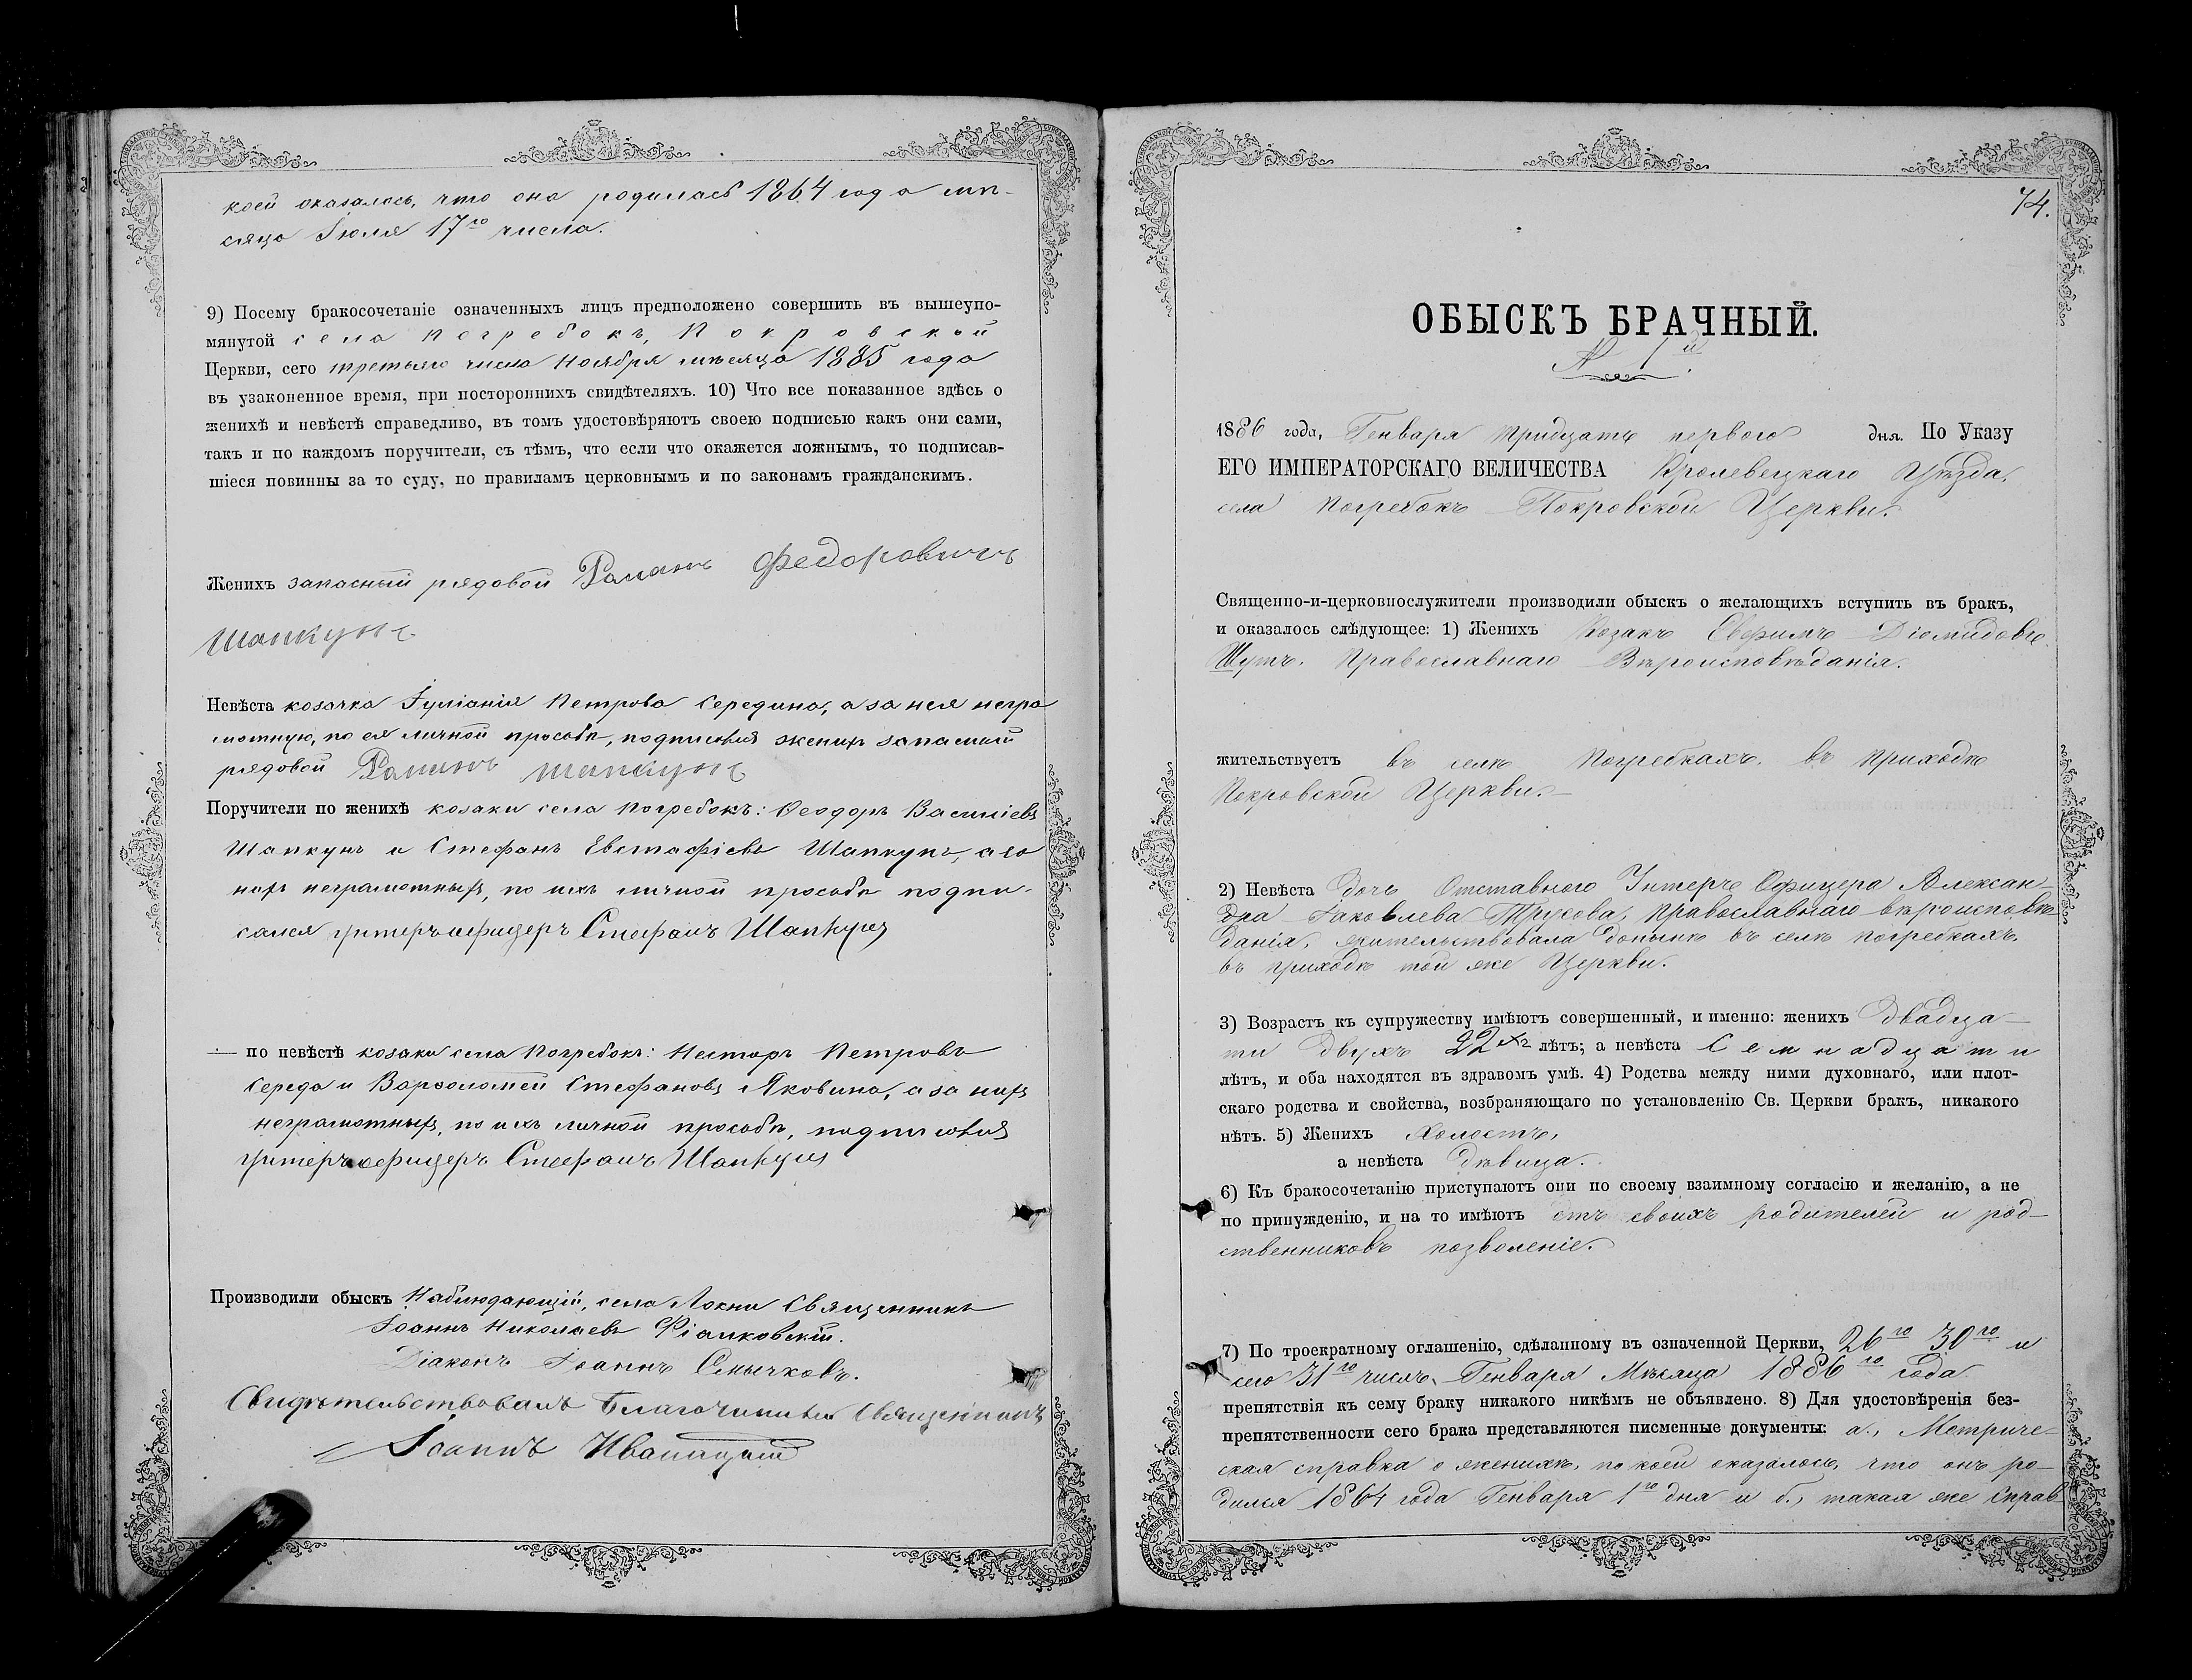 коей оказалось, что она родилась 1864 года мѣ-
сяца Іюля 17го числа.
9) Посему бракосочетаніе означенныхъ лицъ предположено совершить въ вышеупо-
мянутой села Погребокъ, Покровской
Церкви, сего третьяго числа Ноября мѣсяца 1885 года
въ узаконенное время, при постороннихъ свидѣтеляхъ. 10) Что все показанное здѣсь о
женихѣ и невѣстѣ справедливо, въ томъ удостовѣряютъ своею подписью какъ они сами,
такъ и по каждомъ поручители, съ тѣмъ, что если что окажется ложнымъ, то подписав-
шіеся повинны за то суду, по правиламъ церковнымъ и по законамъ гражданскимъ.
Женихъ запасный рядовой Романъ Федоровичъ
Шапкунъ
Невѣста козачка Іуліанія Петрова Середина, а за нея негра
мотную, по ея личной просьбѣ, подписался женихъ запасный
рядовой Романъ Шапкунъ
Поручители по женихѣ козаки села Погребокъ: Ѳеодоръ Василіевъ
Шапкунъ и Стефанъ Евстафіевъ Шапкунъ, а за
нихъ неграмотныхъ, по ихъ личной просьбѣ подпи-
сался унтеръ офицеръ Стефанъ Шапкунъ
— по невѣстѣ козаки села Погребокъ: Несторъ Петровъ
Середа и Варѳоломей Стефановъ Яковина, а за нихъ
неграмотныхъ, по ихъ личной просьбѣ, подписался
унтеръ офицеръ Стефанъ Шапкунъ
Производили обыскъ Наблюдающій, села Локни Священникъ
Іоаннъ Николаевъ Фіалковскій.
Діаконъ Іоаннъ Смычковъ.
Свидѣтельствовалъ Благочинный Священникъ
Іоаннъ
74.
ОБЫСКЪ БРАЧНЫЙ.
№ 1й.
1886 года, Генваря тридцать перваго дня. По Указу
ЕГО ИМПЕРАТОРСКАГО ВЕЛИЧЕСТВА Кролевецкаго Уѣзда,
села Погребокъ Покровской Церкви.
Священно-и-церковнослужители производили обыскъ о желающихъ вступить въ бракъ,
и оказалось слѣдующее: 1) Женихъ Козакъ Евфимъ Діомидовъ
Шутъ, Православнаго Вѣроисповѣданія.
жительствуетъ въ селѣ Погребкахъ, въ приходѣ
Покровской Церкви.—
2) Невѣста дочь Отставного Унтеръ Офицера Алексан-
дра Іаковлева Трусова, православнаго вѣроисповѣ-
данія, жительствовала донынѣ въ селѣ Погребкахъ,
въ приходѣ той же Церкви.
3) Возрастъ къ супружеству имѣютъ совершенный, и именно: женихъ двадца-
ти двухъ 22хъ лѣтъ; а невѣста Семнадцати
лѣтъ, и оба находятся въ здравомъ умѣ. 4) Родства между ними духовнаго, или плот-
скаго родства и свойства, возбраняющаго по установленію Св. Церкви бракъ, никакого
нѣтъ. 5) Женихъ Холостъ,
а невѣста дѣвица.
6) Къ бракосочетанію приступаютъ они по своему взаимному согласію и желанію, а не
по принужденію, и на то имѣютъ отъ своихъ родителей и род-
ственниковъ позволеніе.
7) По троекратному оглашенію, сдѣланному въ означенной Церкви, 26го 30го и
сего 31го числъ, Генваря Мѣсяца 1886го года
препятствія къ сему браку никакого никѣмъ не объявлено. 8) Для удостовѣренія без-
препятственности сего брака представляются писменные документы: а., Метриче-
ская справка о женихѣ, по коей оказалось, что онъ ро-
дился 1864 года Генваря 1го дня и б., такая же справ